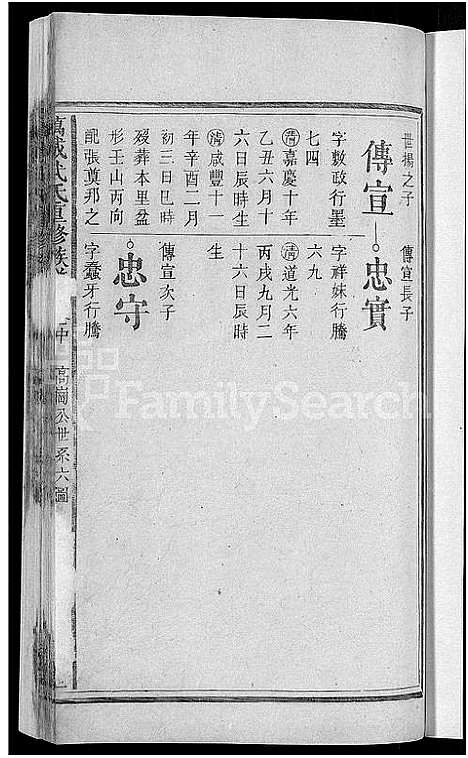 世揚之子
傳宣
字敷政行墨
七四
清嘉慶十年
乙丑六月十
六日辰時生
清咸豐十一
年辛酉二月
初三日巳時
歿葬本里盆
形王山丙向
配張奠邦之
傳宣長子
忠實
字祥妹行騰
六九
清道光六年
丙戌九月二
十六日辰時
生
傳宣次子
忠守
字蠢牙行騰
萬載 氏重修族
中 高崗公世系六圖
FamilySearch